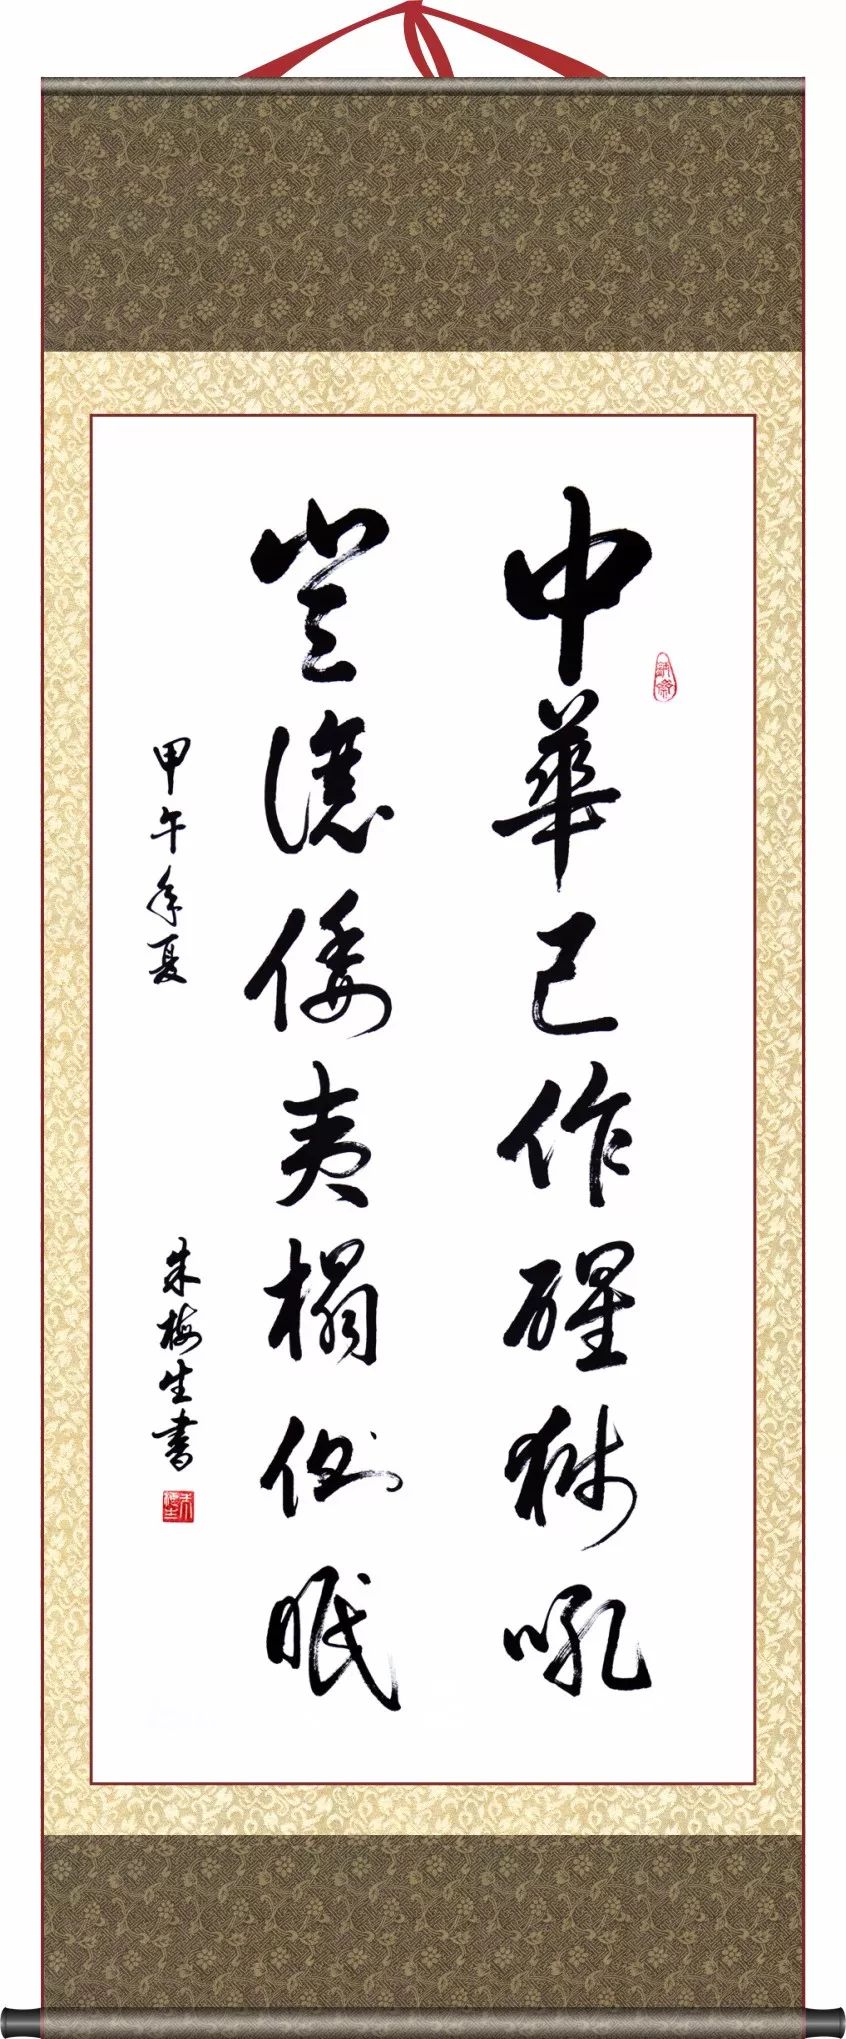 中華已作醒獅吼
豈讓倭夷榻側眠
甲午年夏 朱梅生書